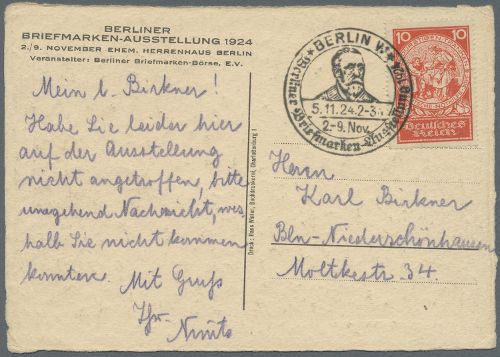 BERLINER
BRIEFMARKEN-AUSSTELLUNG 1924
2./9. NOVEMBER EHEM. HERRENHAUS BERLIN
Veranstalter: Berliner Briefmarken-Börse, E.V.
Mein l. Birkner!
Habe Sie leider hier
auf der Ausstellung
nicht angetroffen, bitte
umgehend Nachricht, wes
halb Sie nicht kommen
konnten. Mit Gruß
Ihr
Druck: Hans Winter, Buchdruckerei, Charlottenburg 1
BERLIN W.
5.11.24.2-3
2-9. Nov.
Berliner Briefmarken-Ausstellung
10 10
Deutsches
Reich
Herrn
Karl Birkner
Bln-Niederschönhausen
Moltkestr. 34.